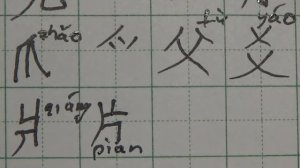 爪 zhǎo 爫 父 fù 爻 yáo
爿 qiáng 片 piàn